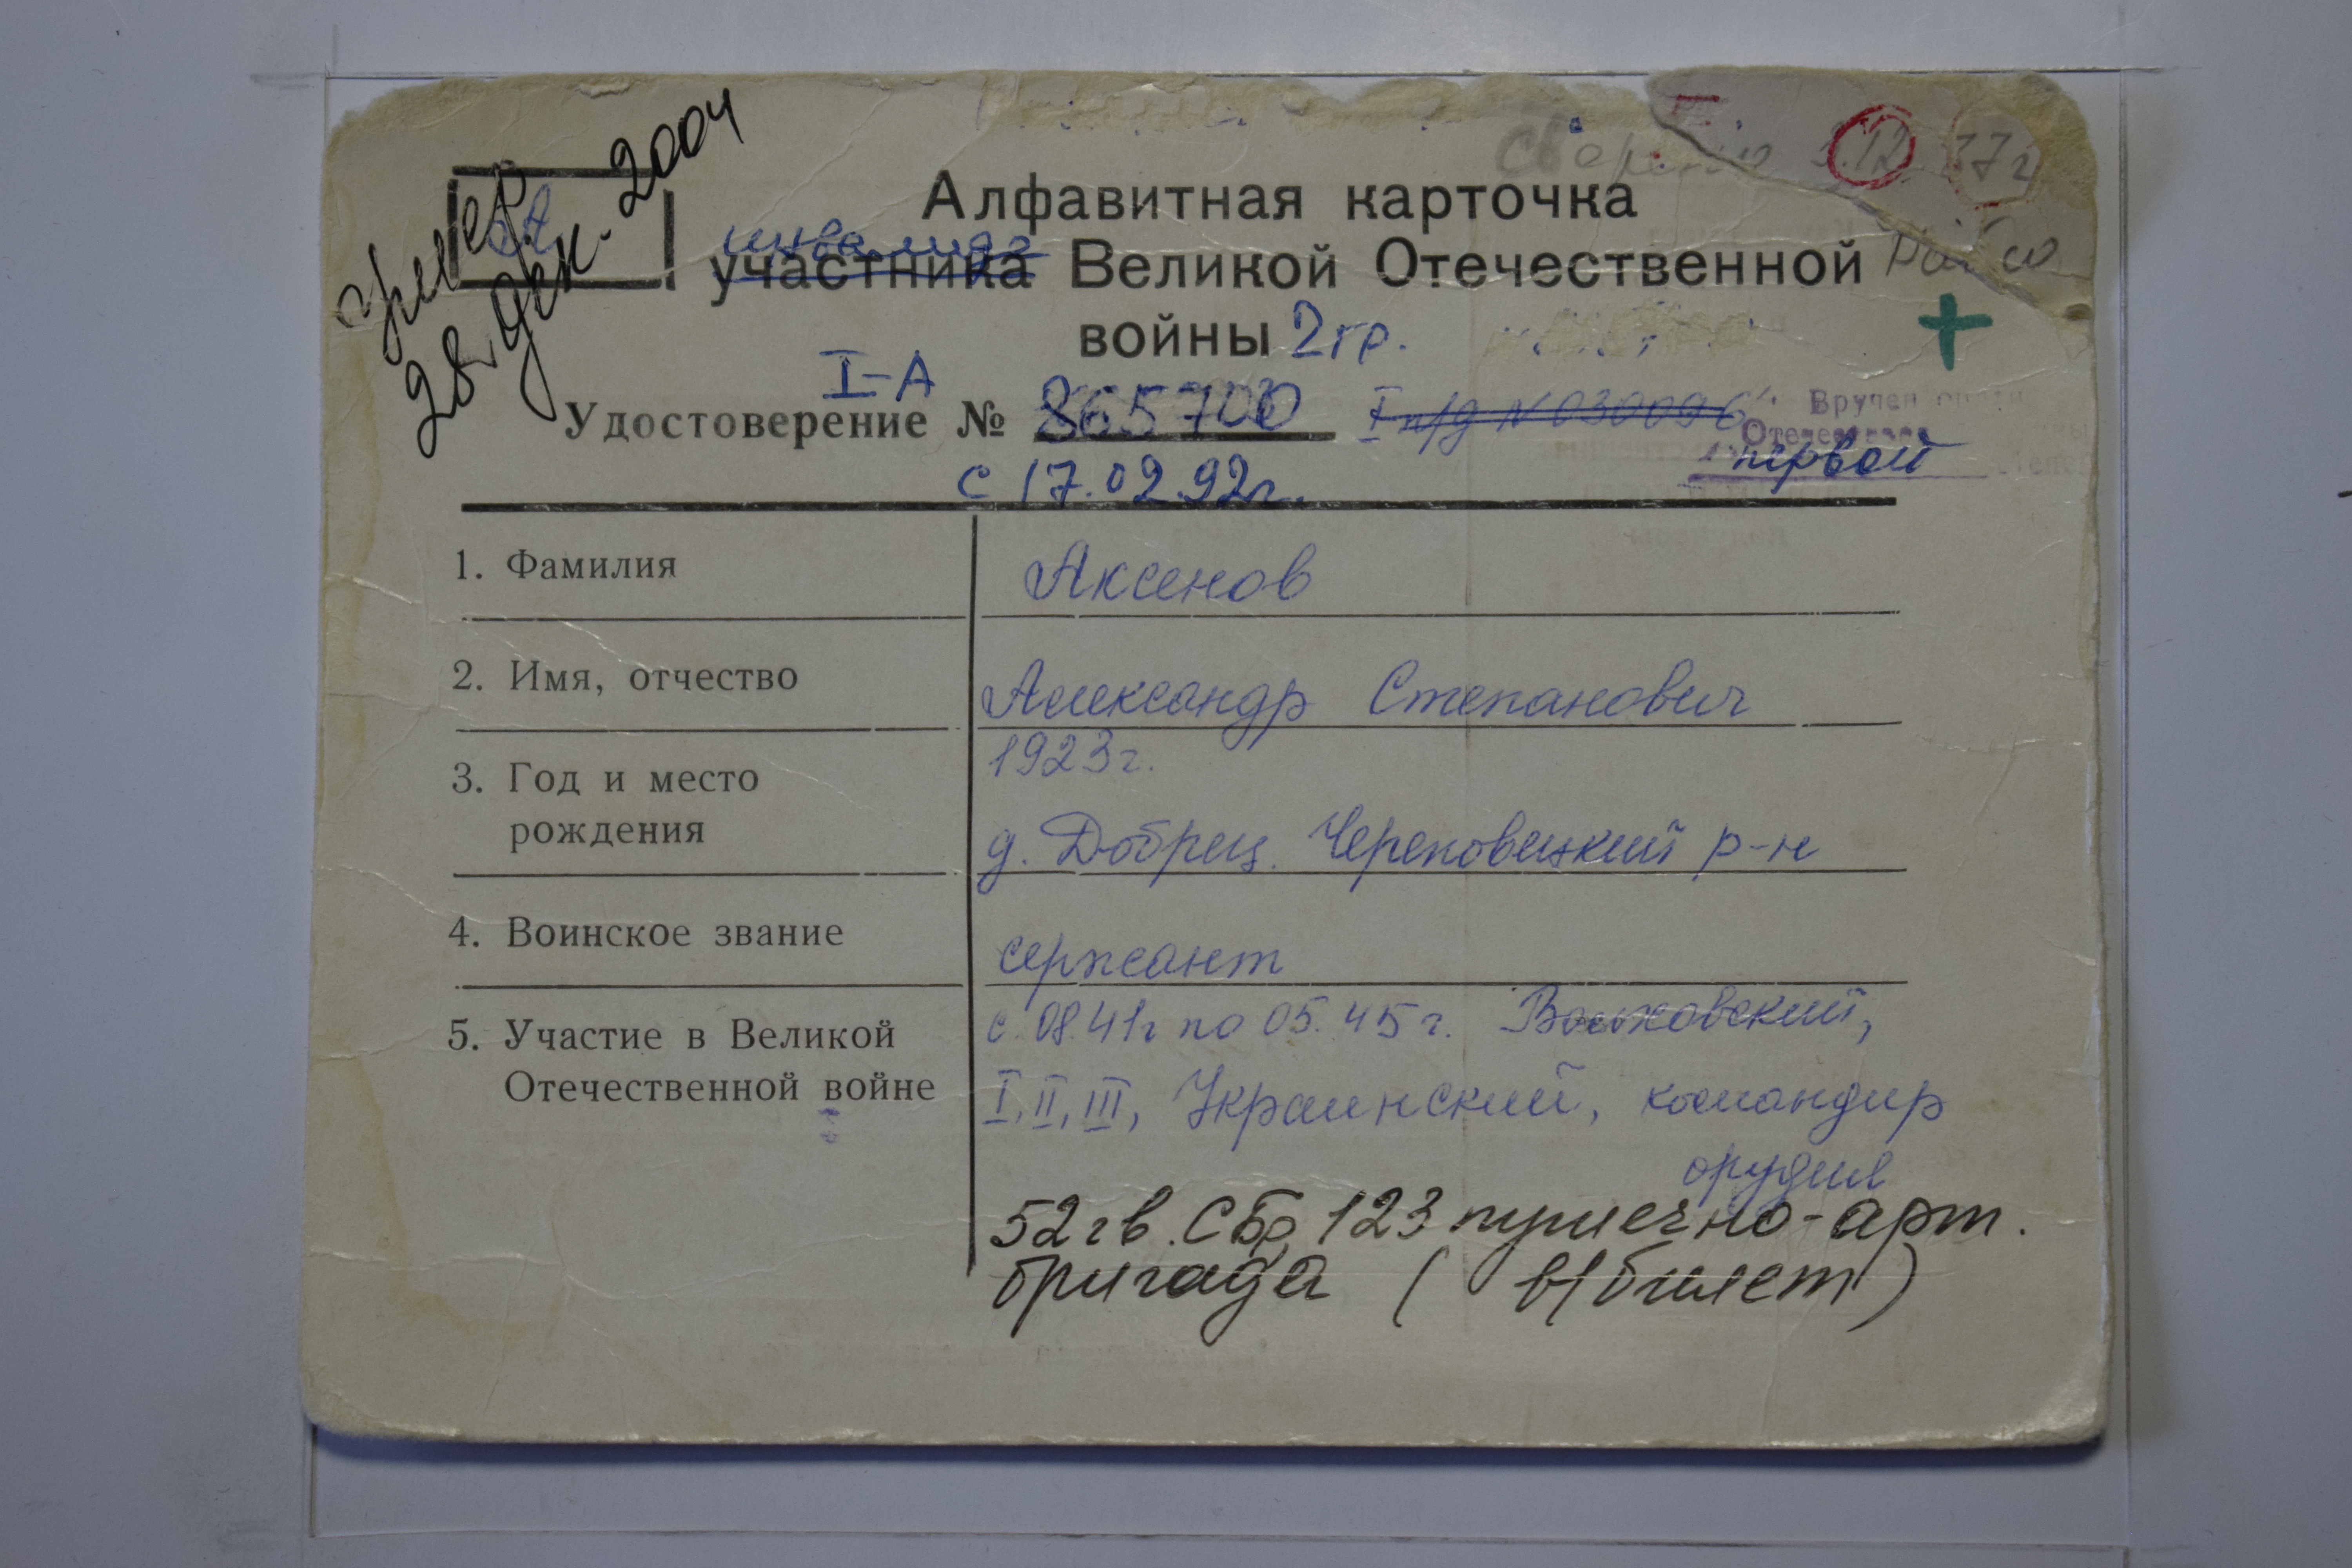 умер
28 дек. 2004
А
Алфавитная карточка
инвалида
участника Великой Отечественной
войны 2 гр.
I-А
Удостоверение № 865700 I п/д № 030096
Вручен
Отечеств
первой
с 17.02.92г.
1. Фамилия
Аксенов
2. Имя, отчество
Александр Степанович
3. Год и место
рождения
1923г.
д. Добрец. Череповецкий р-н
4. Воинское звание
сержант
5. Участие в Великой
Отечественной войне
с 08.41г по 05.45г. Волховский,
I, II, III, Украинский, командир
орудия
52 гв. СБр 123 пушечно-арт.
бригада ( в/билет)